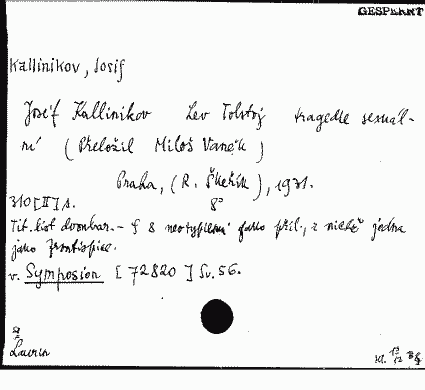 GESPERRT
Kallinikov, Josif
Josef Kallinikov Lev Tolstoj tragedie sexuál-
ní (Přeložil Miloš Vaněk)
Praha, (R. Škeřík), 1931.
310 [II] s. 8°
Tit. list dvoubar. - S 8 neotypiemi jako příl., z nichž jedna
jako frontispice.
v. Symposion [72820] Sv. 56.